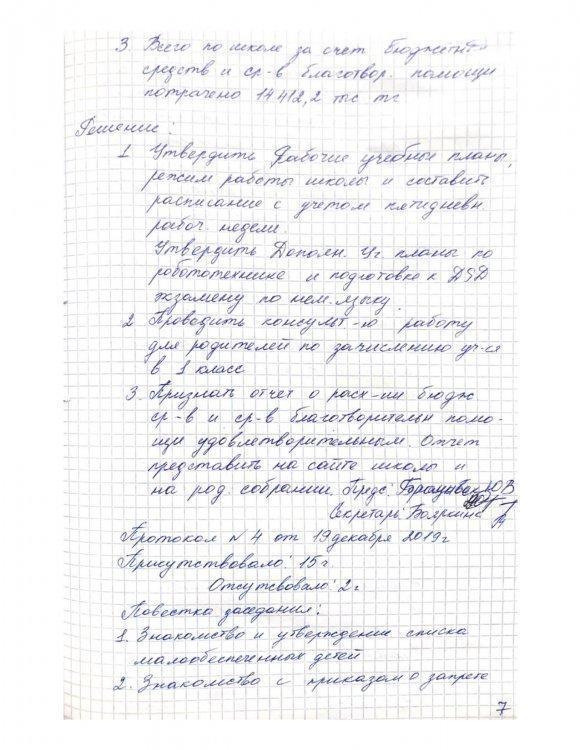 3. Всего по школе за счет бюджетн
средств и ср-в благотвор. помощи
потрачено 14412,2 тыс тг
Решение:
1 Утвердить Рабочие учебные планы,
режим работы школы и составить
расписание с учетом пятидневн
рабоч. недели.
Утвердить Дополн. Уч планы по
робототехнике и подготовке к ДSД
экзамену по нем. языку.
2 Проводить консульт-ю работу
для родителей по зачислению уч-ся
в 1 класс
3. Признать отчет о расх-ии бюдж
ср-в и ср-в благотворительн помо-
щи удовлетворительным. Отчет
представить на сайте школы и
на род. собрании. Предс:
Секретарь: Бояркина
Протокол N 4 от 19 декабря 2019г
Присутствовало: 15ч
Отсутсвовало: 2ч
Повестка заседания:
1. Знакомство и утверждение списка
малообеспеченных детей
2. Знакомство с приказом о запрете
7